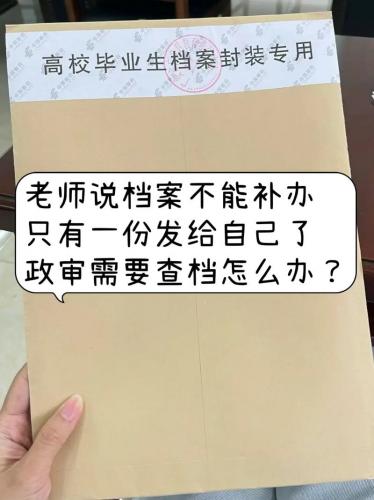 高校毕业生档案封装专用
老师说档案不能补办
只有一份发给自己了
政审需要查档怎么办？